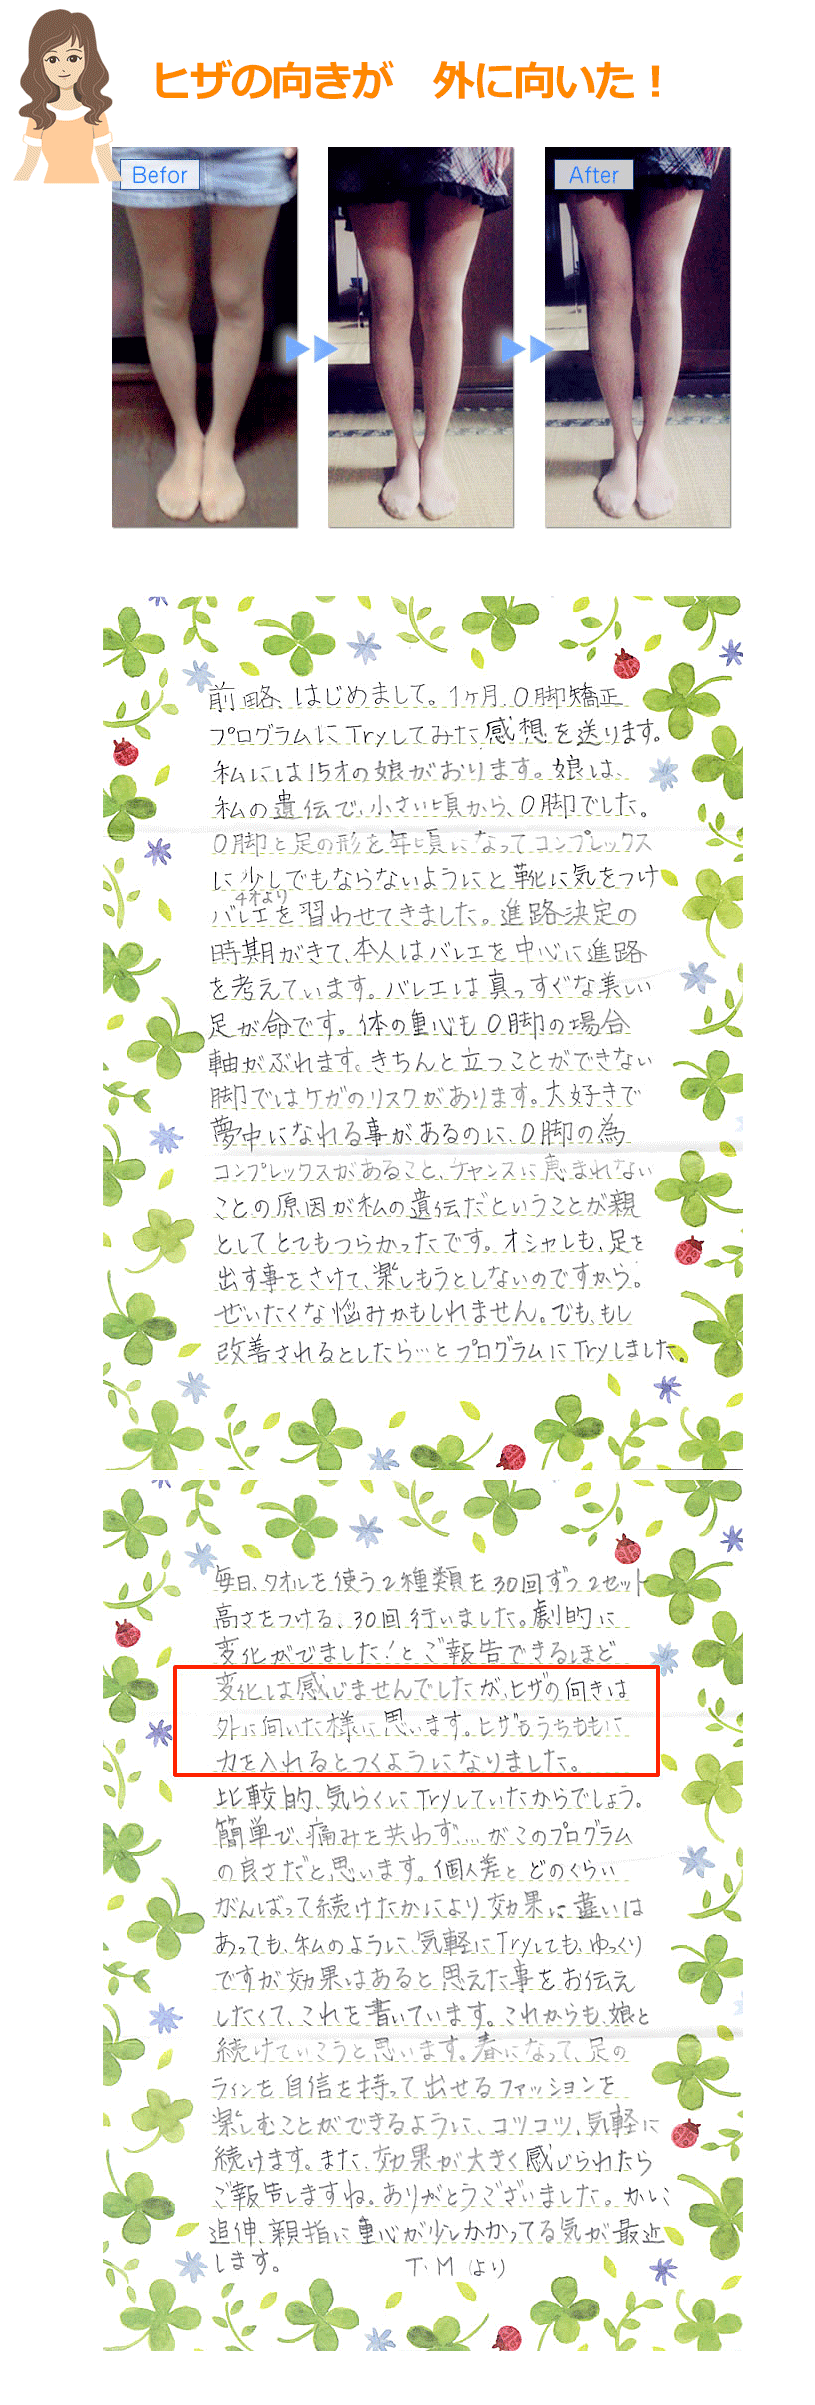 ヒザの向きが　外に向いた！
Befor
After
前略、はじめまして。1ヶ月、O脚矯正
プログラムにTryしてみた感想を送ります。
私には15才の娘がおります。娘は、
私の遺伝で、小さい頃から、O脚でした。
O脚と足の形を年頃になってコンプレックス
に少しでもならないようにと靴に気をつけ
4才より
バレエを習わせてきました。進路決定の
時期がきて、本人はバレエを中心に進路
を考えています。バレエは真っすぐな美しい
足が命です。体の重心もO脚の場合
軸がぶれます。きちんと立つことができない
脚ではケガのリスクがあります。大好きで
夢中になれる事があるのに、O脚の為
コンプレックスがあること、チャンスに恵まれない
ことの原因が私の遺伝だということが親
としてとてもつらかったです。オシャレも、足を
出す事をさけて、楽しもうとしないのですから。
ぜいたくな悩みかもしれません。でも、もし
改善されるとしたら…とプログラムにTryしました。
毎日、タオルを使う2種類を30回ずつ2セット
高さをつける、30回行いました。劇的に
変化がでました！とご報告できるほど
変化は感じませんでしたが、ヒザの向きは
外に向いた様に思います。ヒザもうちももに
力を入れるとつくようになりました。
比較的、気らくにTryしていたからでしょう。
簡単で、痛みを共わず….がこのプログラム
の良さだと思います。個人差とどのくらい
がんばって続けたかにより効果に違いは
あっても、私のように、気軽にTryしても、ゆっくり
ですが効果はあると思えた事をお伝え
したくて、これを書いています。これからも、娘と
続けていこうと思います。春になって、足の
ラインを自信を持って出せるファッションを
楽しむことができるように、コツコツ、気軽に
続けます。また、効果が大きく感じられたら
ご報告しますね。ありがとうございました。かしこ
追伸、親指に重心が少しかかってる気が最近
します。
T.Mより